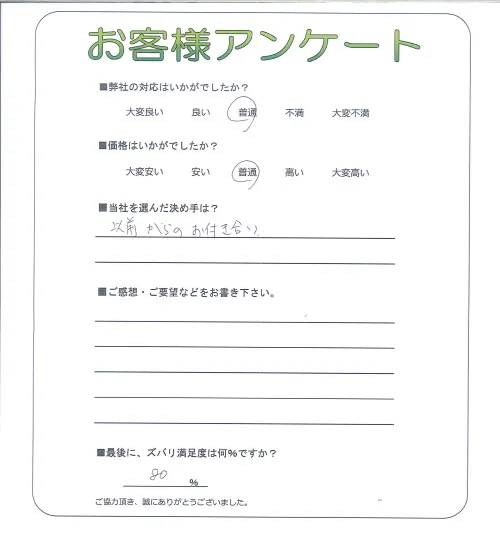 お客様アンケート
■弊社の対応はいかがでしたか？
大変良い 良い 普通 不満 大変不満
■価格はいかがでしたか？
大変安い 安い 普通 高い 大変高い
■当社を選んだ決め手は？
以前からのお付き合い
■ご感想・ご要望などをお書き下さい。
■最後に、ズバリ満足度は何％ですか？
80 ％
ご協力頂き、誠にありがとうございました。